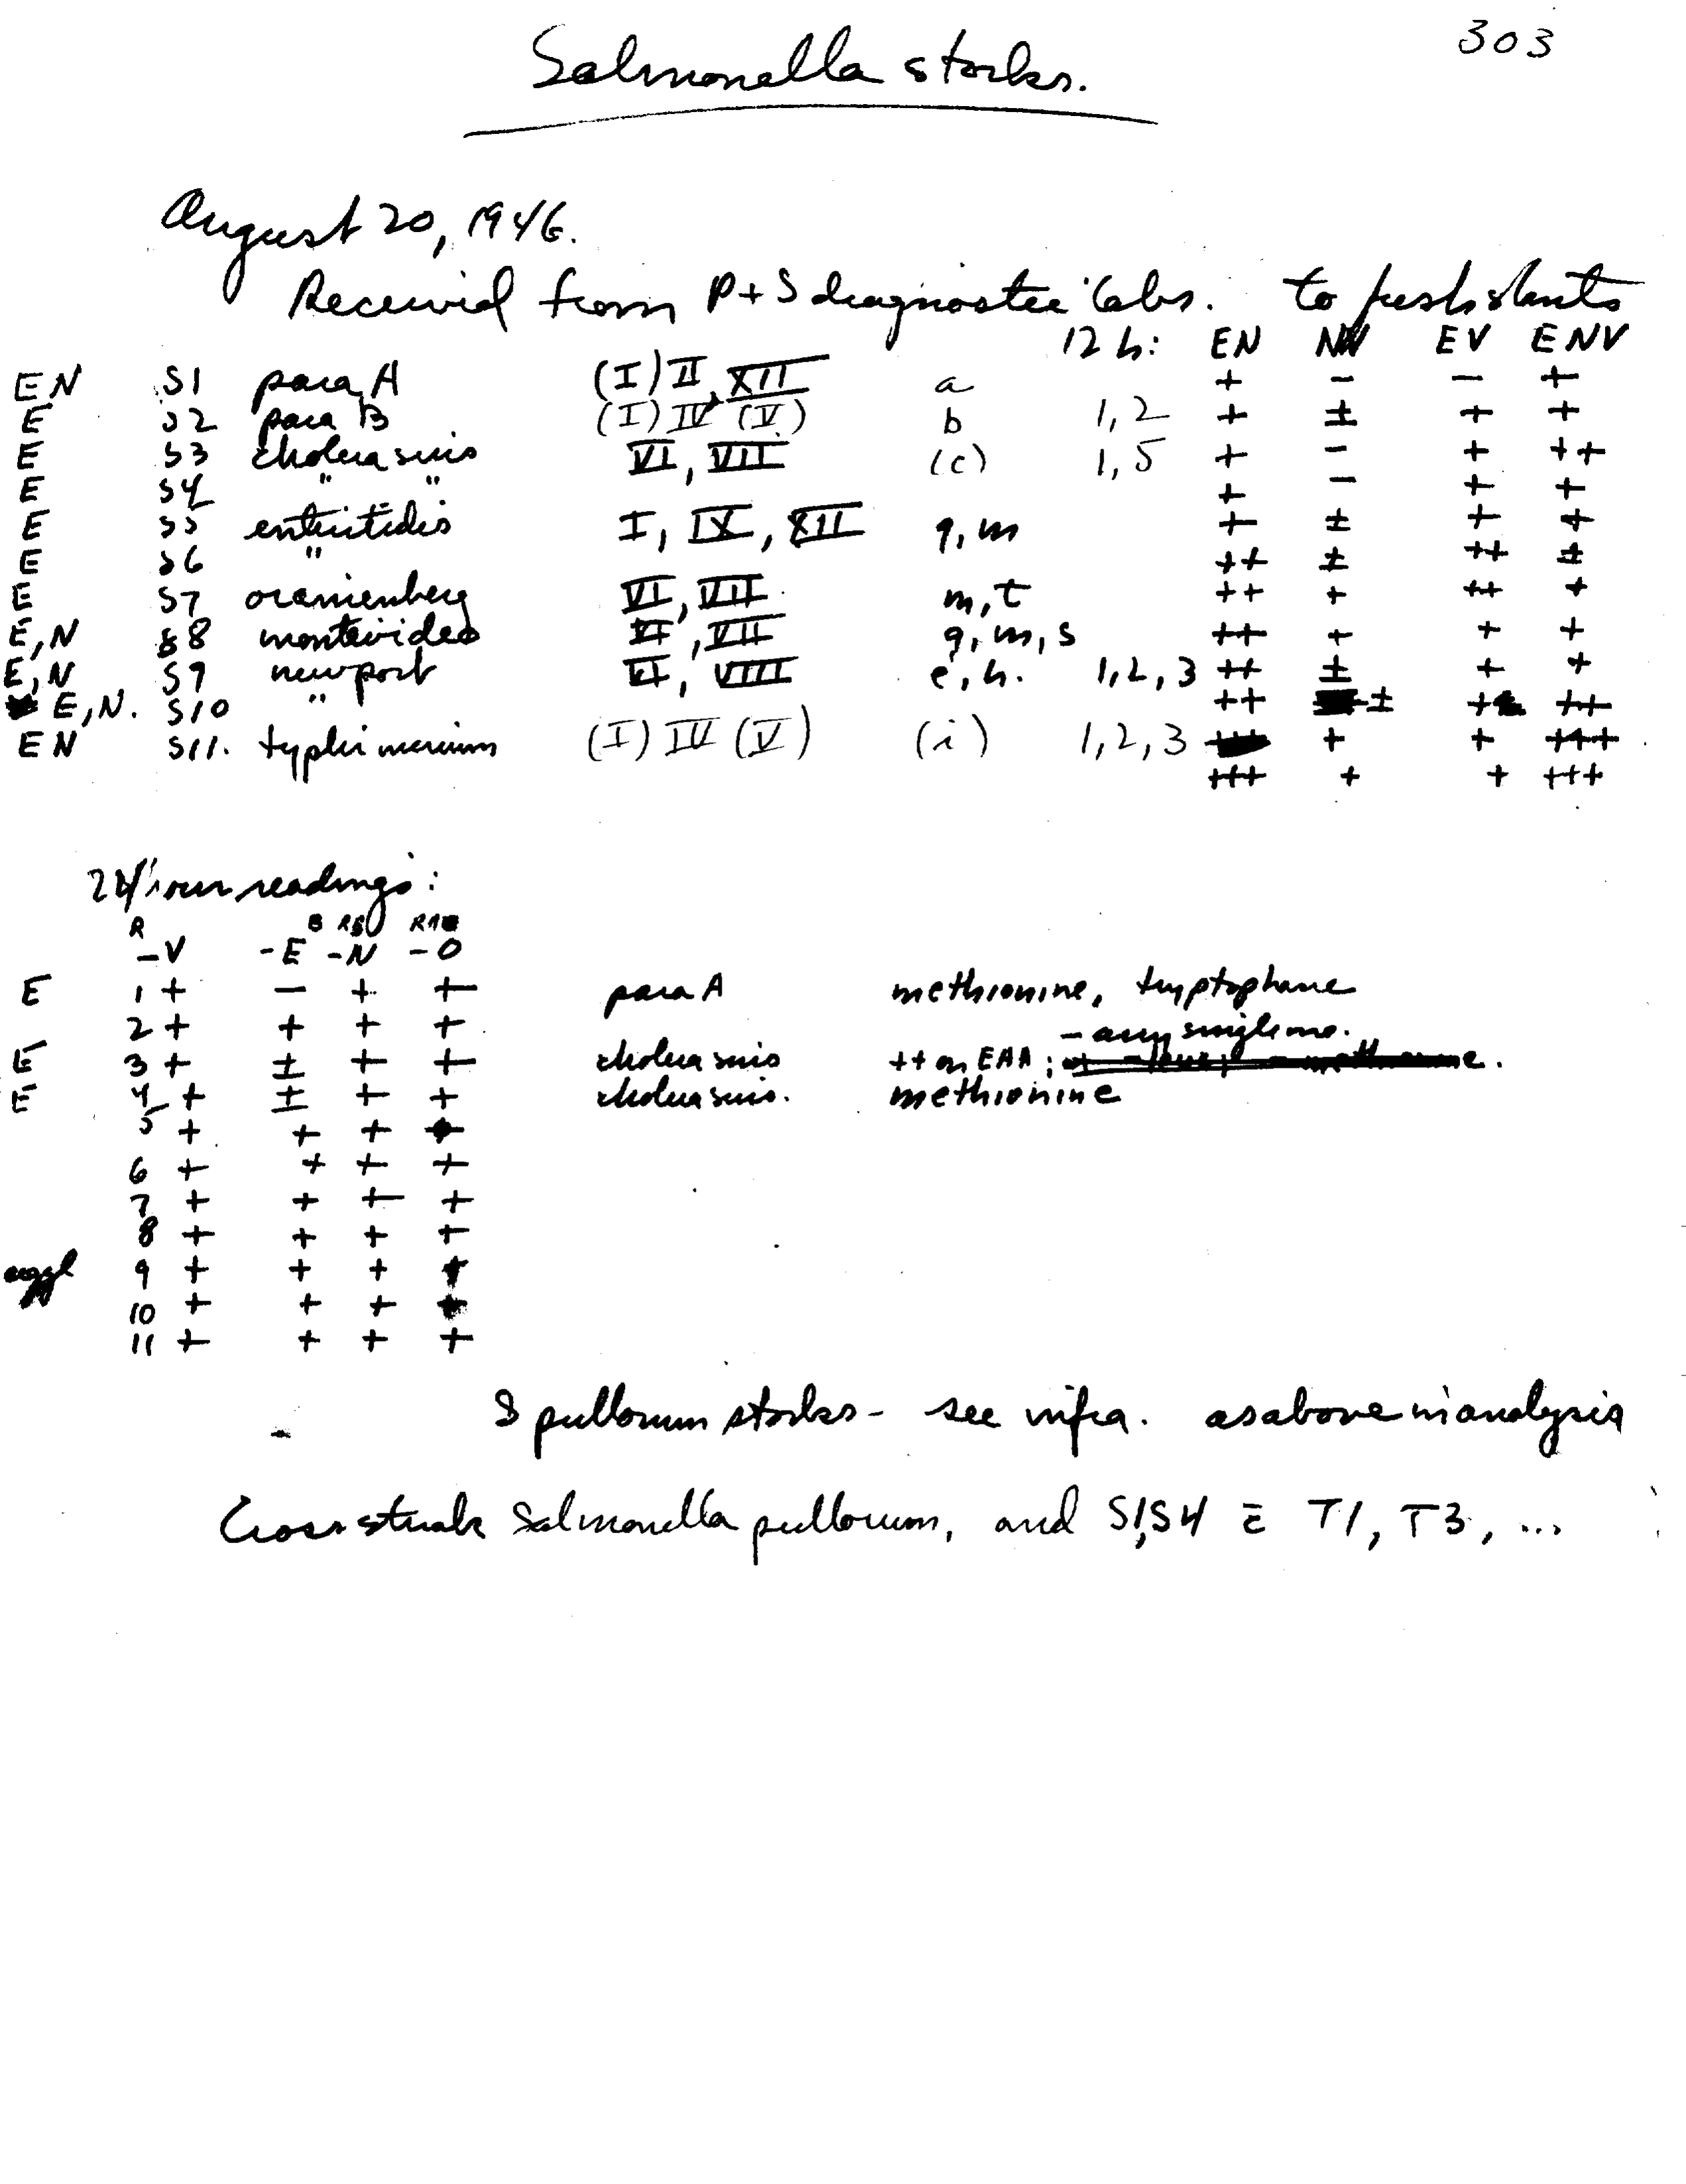 303
Salmonella stocks.
August 20, 1946.
Received from P+S diagnostic labs. to fresh slants
12 h: EN NV EV ENV
EN S1 para A (I) II, XII a + - - +
E S2 para B (I) IV (V) b 1,2 + ± + +
E S3 cholera suis VI, VII (c) 1,5 + - + ++
E S4 " " + - + +
E S5 enteritidis I, IX, XII g, m + ± + +
E S6 " ++ ± ++ ±
E S7 oranienberg VI, VII m, t ++ + ++ +
E, N S8 montevideo VI, VII g, m, s ++ + + +
E, N S9 newport VI, VIII e, h. 1,2,3 ++ ± + +
E, N. S10 " ++ ± ++ ++
EN S11. typhi murium (I) IV (V) (i) 1,2,3 + + +++
+++ + + +++
24 hour readings:
R B
-V -E -N -O
E 1 + - + + para A methionine, tryptophane
2 + + + + - any single one.
E 3 + ± + + cholera suis ++ on EAA;
E 4 + ± + + cholera suis. methionine
5 + + + +
6 + + + +
7 + + + +
8 + + + +
aggl 9 + + + +
10 + + + +
11 + + + +
S pullorum stocks - see infra. as above in analysis
Cross streak Salmonella pullorum, and S1, S4 c̄ T1, T3, ...